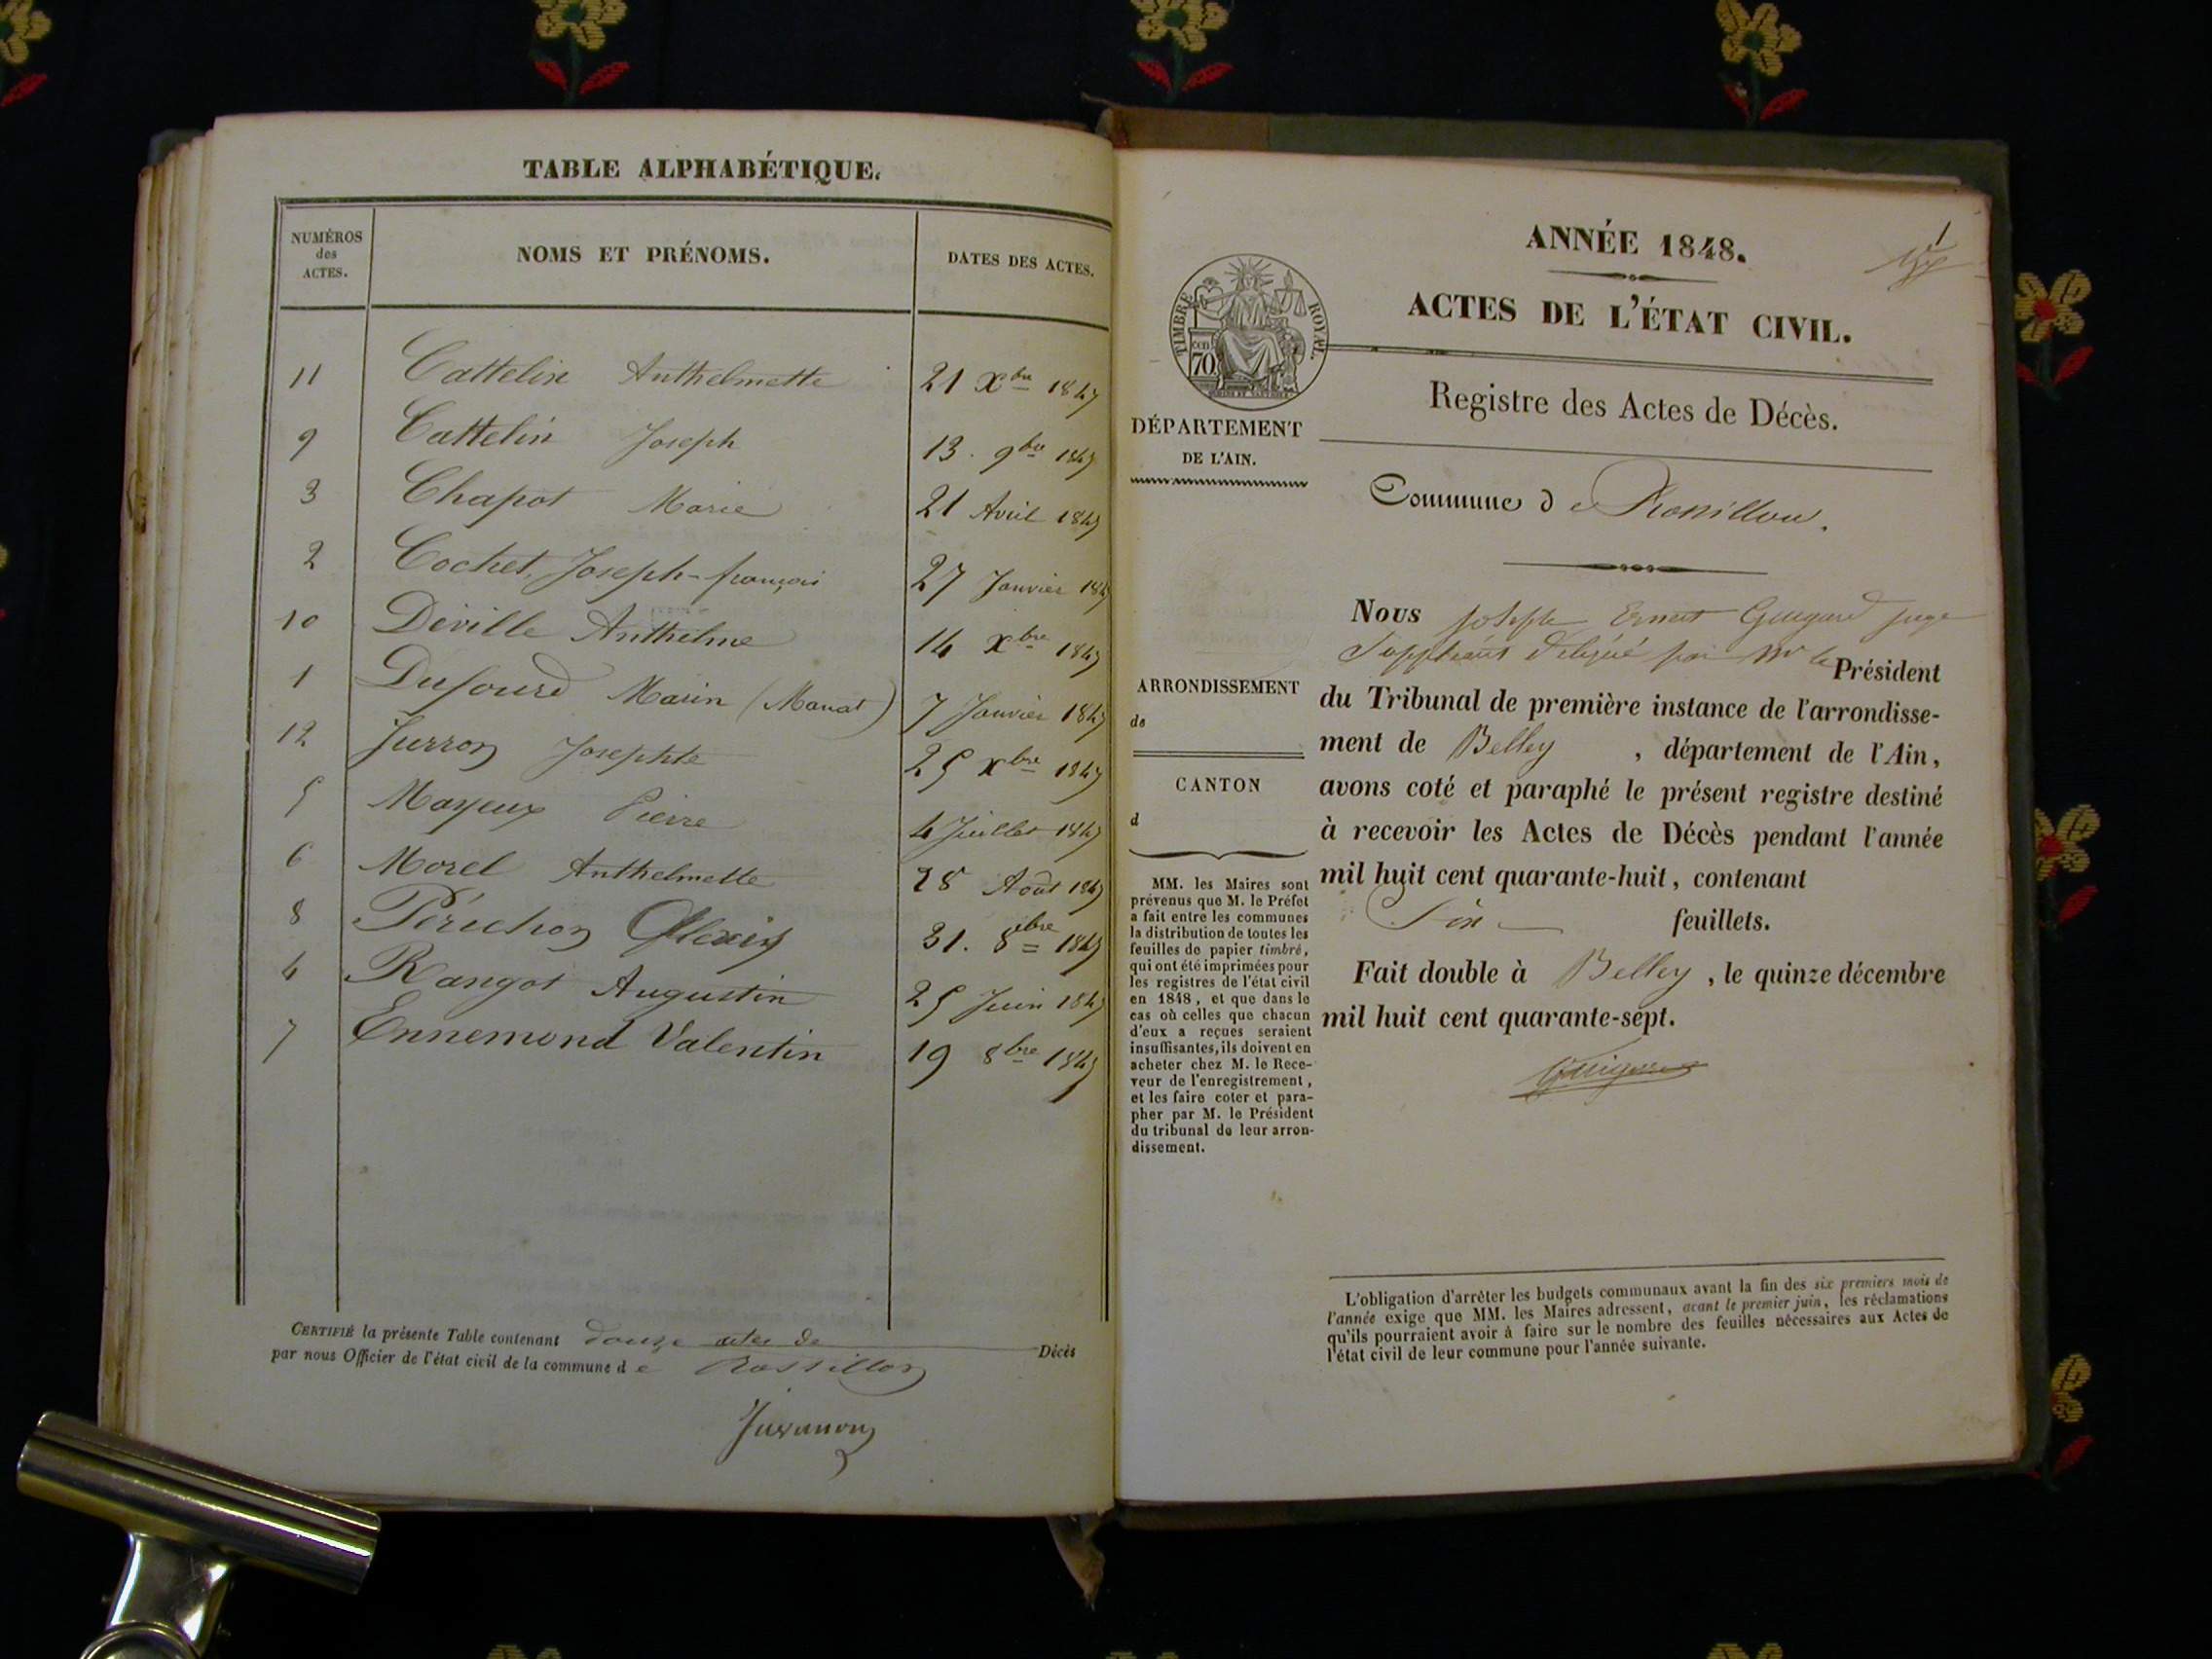 TABLE ALPHABÉTIQUE.
NUMÉROS
des
ACTES.
NOMS ET PRÉNOMS.
DATES DES ACTES.
11 Cattelin Anthelmette 21 Xbre 1847
9 Cattelin Joseph 13. 9bre 1847
3 Chapot Marie 21 Avril 1847
2 Cochet, Joseph-françois 27 Janvier 1847
10 Déville Anthelme 14 Xbre 1847
1 Dufourd Marin (Manat) 7 Janvier 1847
12 Jurron Josephte 25 Xbre 1847
5 Mayeux Pierre 4 Juillet 1847
6 Morel Anthelmette 28 Août 1847
8 Périchon Alexis 31. 8bre 1847
4 Rangot Augustin 25 Juin 1847
7 Ennemond Valentin 19 8bre 1847
CERTIFIÉ la présente Table contenant douze actes de Décès
par nous Officier de l'état civil de la commune d e Rossillon
Juvanon
1
ANNÉE 1848.
ACTES DE L'ÉTAT CIVIL.
TIMBRE ROYAL.
cen
70
Registre des Actes de Décès.
DÉPARTEMENT
DE L'AIN.
Commune d e Rossillon.
Nous joseph Ernest juge
Suppléant délégué par Mr le Président
du Tribunal de première instance de l'arrondisse-
ment de Belley , département de l'Ain,
avons coté et paraphé le présent registre destiné
à recevoir les Actes de Décès pendant l'année
mil huit cent quarante-huit, contenant
Six feuillets.
Fait double à Belley , le quinze décembre
mil huit cent quarante-sept.
ARRONDISSEMENT
de
CANTON
d
MM. les Maires sont
prévenus que M. le Préfet
a fait entre les communes
la distribution de toutes les
feuilles de papier timbré,
qui ont été imprimées pour
les registres de l'état civil
en 1848, et que dans le
cas où celles que chacun
d'eux a reçues seraient
insuffisantes, ils doivent en
acheter chez M. le Rece-
veur de l'enregistrement,
et les faire coter et para-
pher par M. le Président
du tribunal de leur arron-
dissement.
L'obligation d'arrêter les budgets communaux avant la fin des six premiers mois de
l'année exige que MM. les Maires adressent, avant le premier juin, les réclamations
qu'ils pourraient avoir à faire sur le nombre des feuilles nécessaires aux Actes de
l'état civil de leur commune pour l'année suivante.